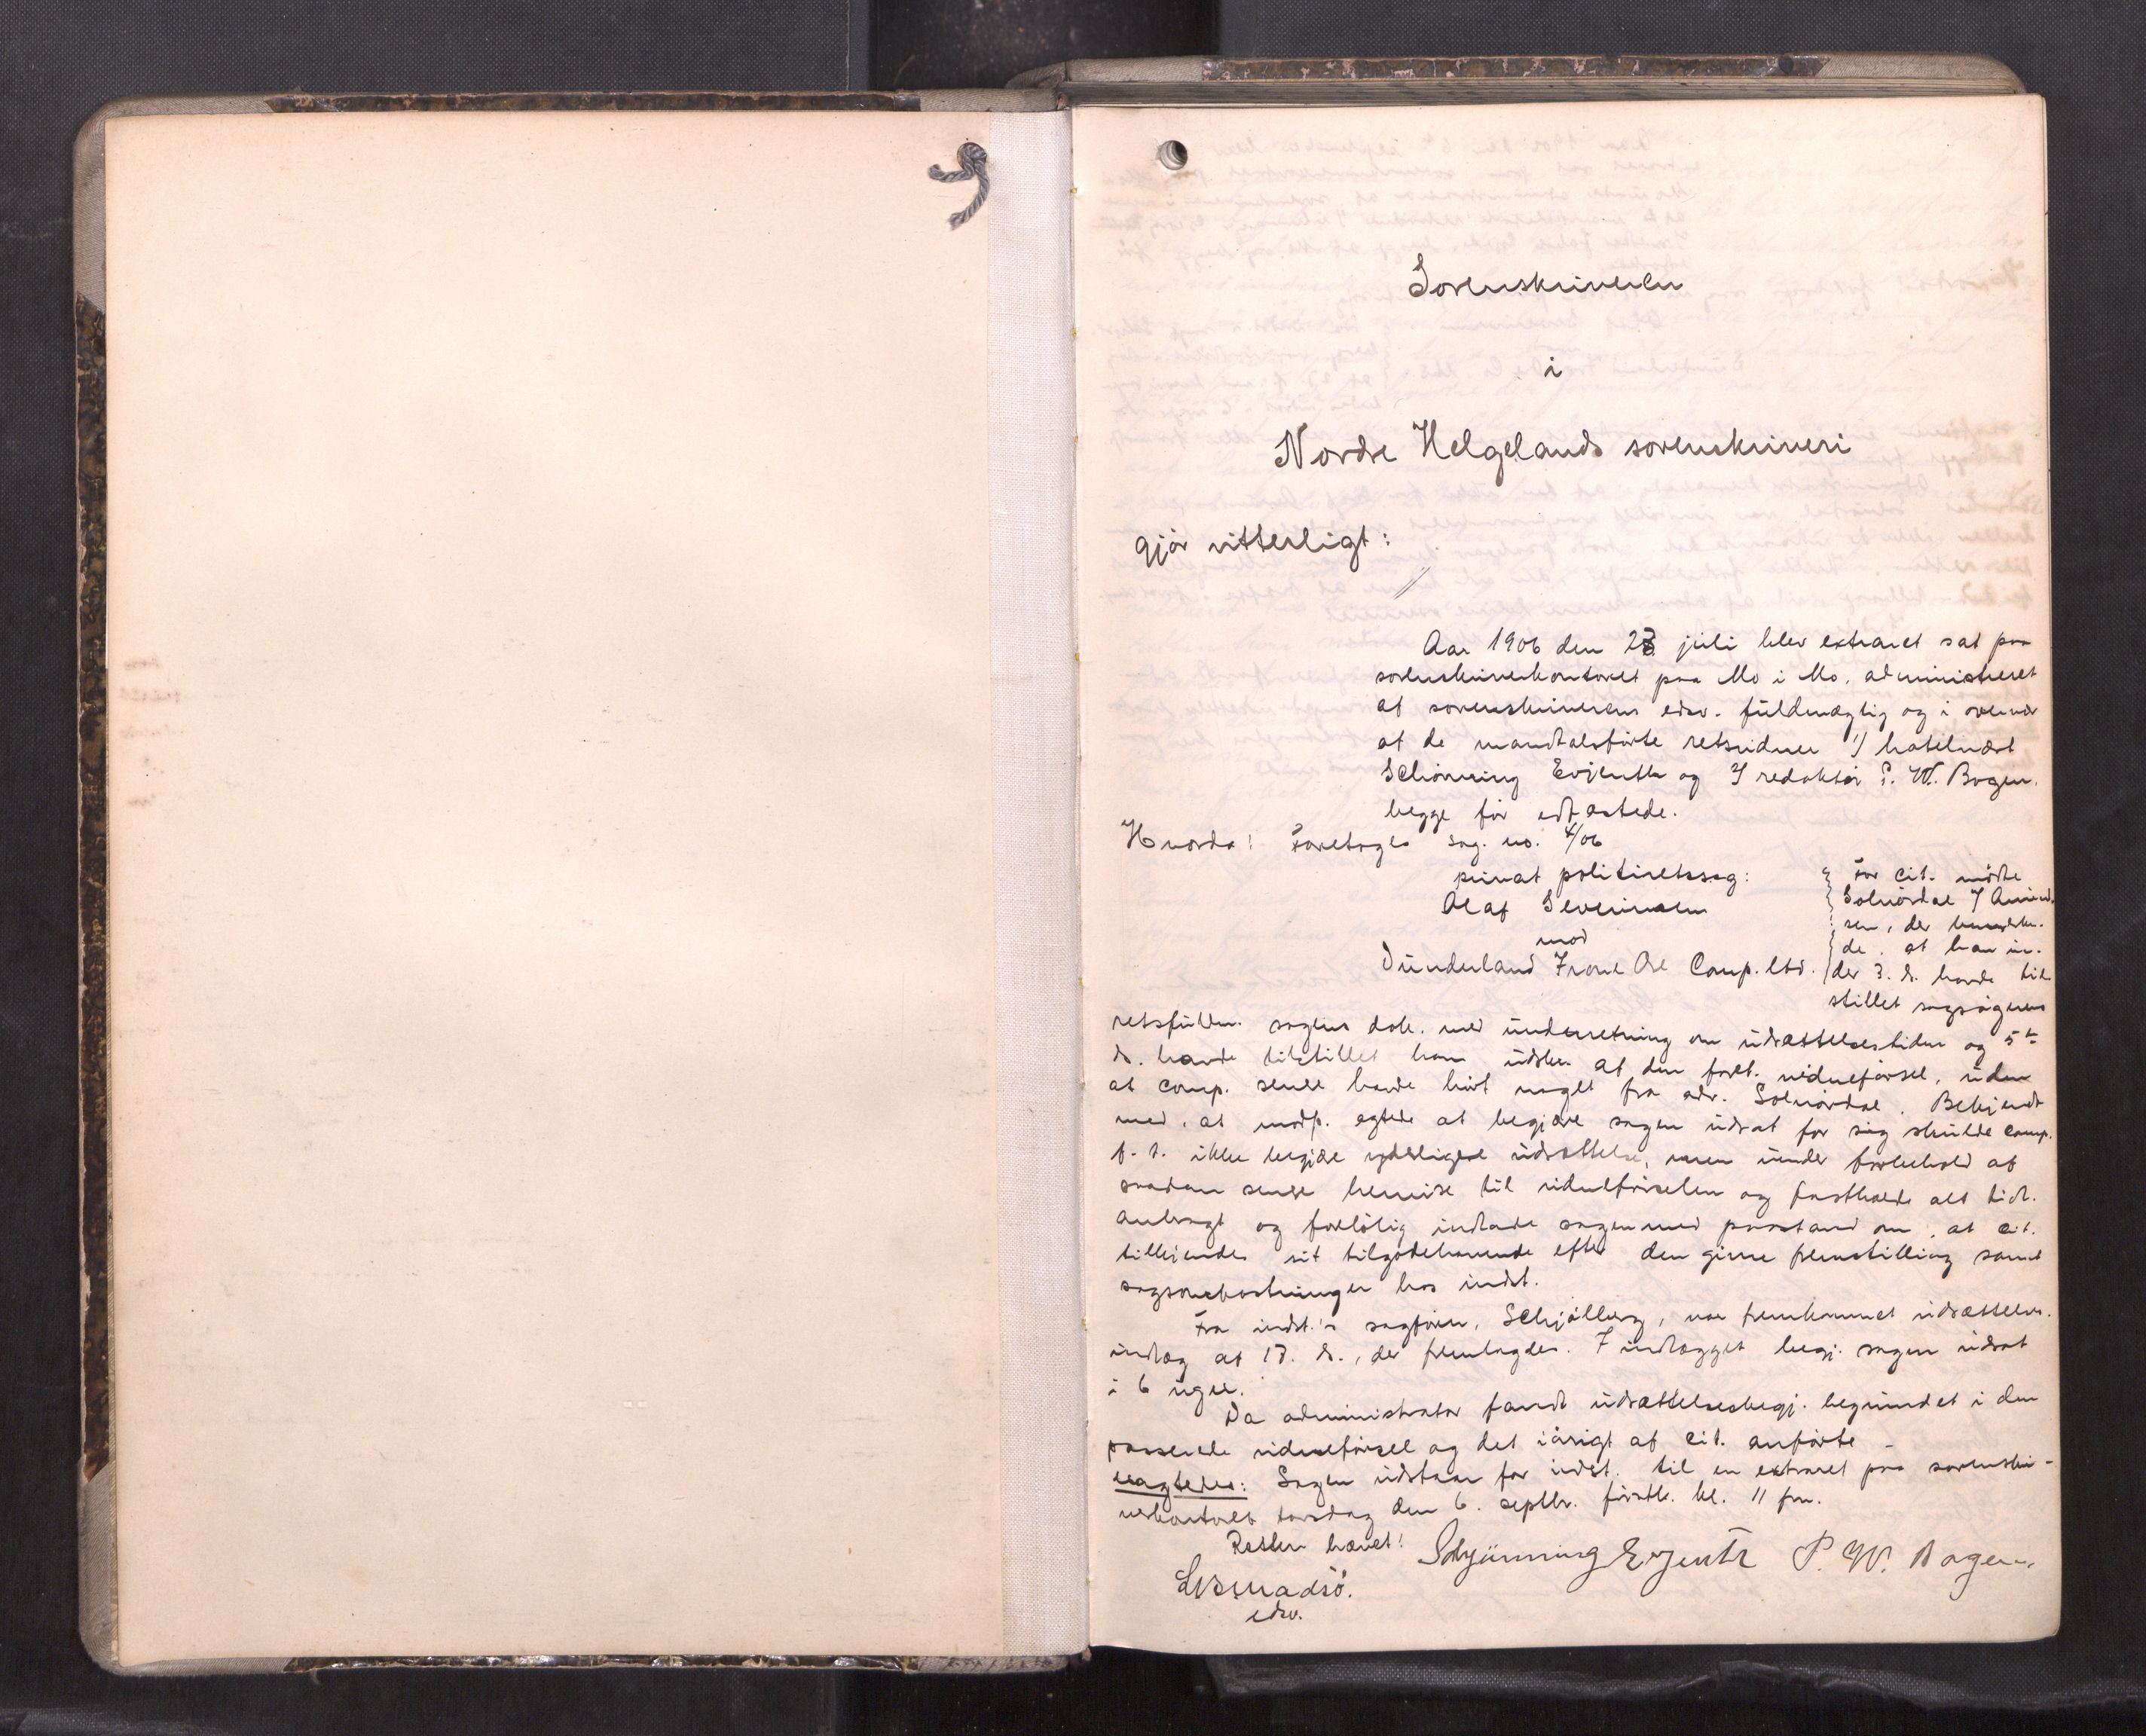 Sorenskriveren
i
Nordre Helgelands sorenskriveri
gjör vitterligt:
Aar 1906 den 23 juli blev extraret sat paa
sorenskriverkontoret paa Mo i Mo, administreret
af sorenskriverens edsv. fuldmægtig og i overvær
af de mandtalsførte retsvidner 1) hotelvært
Schjönning Evjenth og 2 redaktör P. W. Bogen,
begge för edfæstede.
Hvorda: Foretoges sag no. 4/06
privat politiretssag:
Olaf Severinsen
mod
Dunderland Irone Ore Comp. ltd.
For cit. mödte
Solnördal J Amund-
sen, der bemærke-
de, at han un-
der 3. ds. havde til-
stillet sagsögerens
retsfuldm. sagens dok. med underretning om udsættelsestiden og 5te
ds. havde tilstillet ham udskr. af den foret. vidneförsel, uden
at comp. senere havde hört noget fra adv. Solnördal. Bekjendt
med, at modp. agtede at begjære sagen udsat for sig skulde comp.
f. t. ikke begjære yderligere udsættelse, men under forbehold af
saadan senere henvise til vidneförselen og fastholde alt tidl.
anbragt og forelöbig indlade sagen med paastand om, at cit.
tilkjendes sit tilgodehavende efter den givne fremstilling samt
sagsomkostninger hos indst.
Fra indst.'s sagförer, Schjölberg, var fremkommet udsættelses-
indlæg af 17. ds., der fremlagdes. I indlægget begj. sagen udsat
i 6 uger.
Da administrator fandt udsættelsesbegj. begrundet i den
passerede vidneförsel og det iövrigt af cit. anförte -
eragtedes: Sagen udstaar for indst. til en extraret paa sorenskri-
verkontoret torsdag den 6. septbr. förstk. kl. 11 fm.
Retten hævet!
Schjönning Evjenth P. W. Bogen.
edsv.